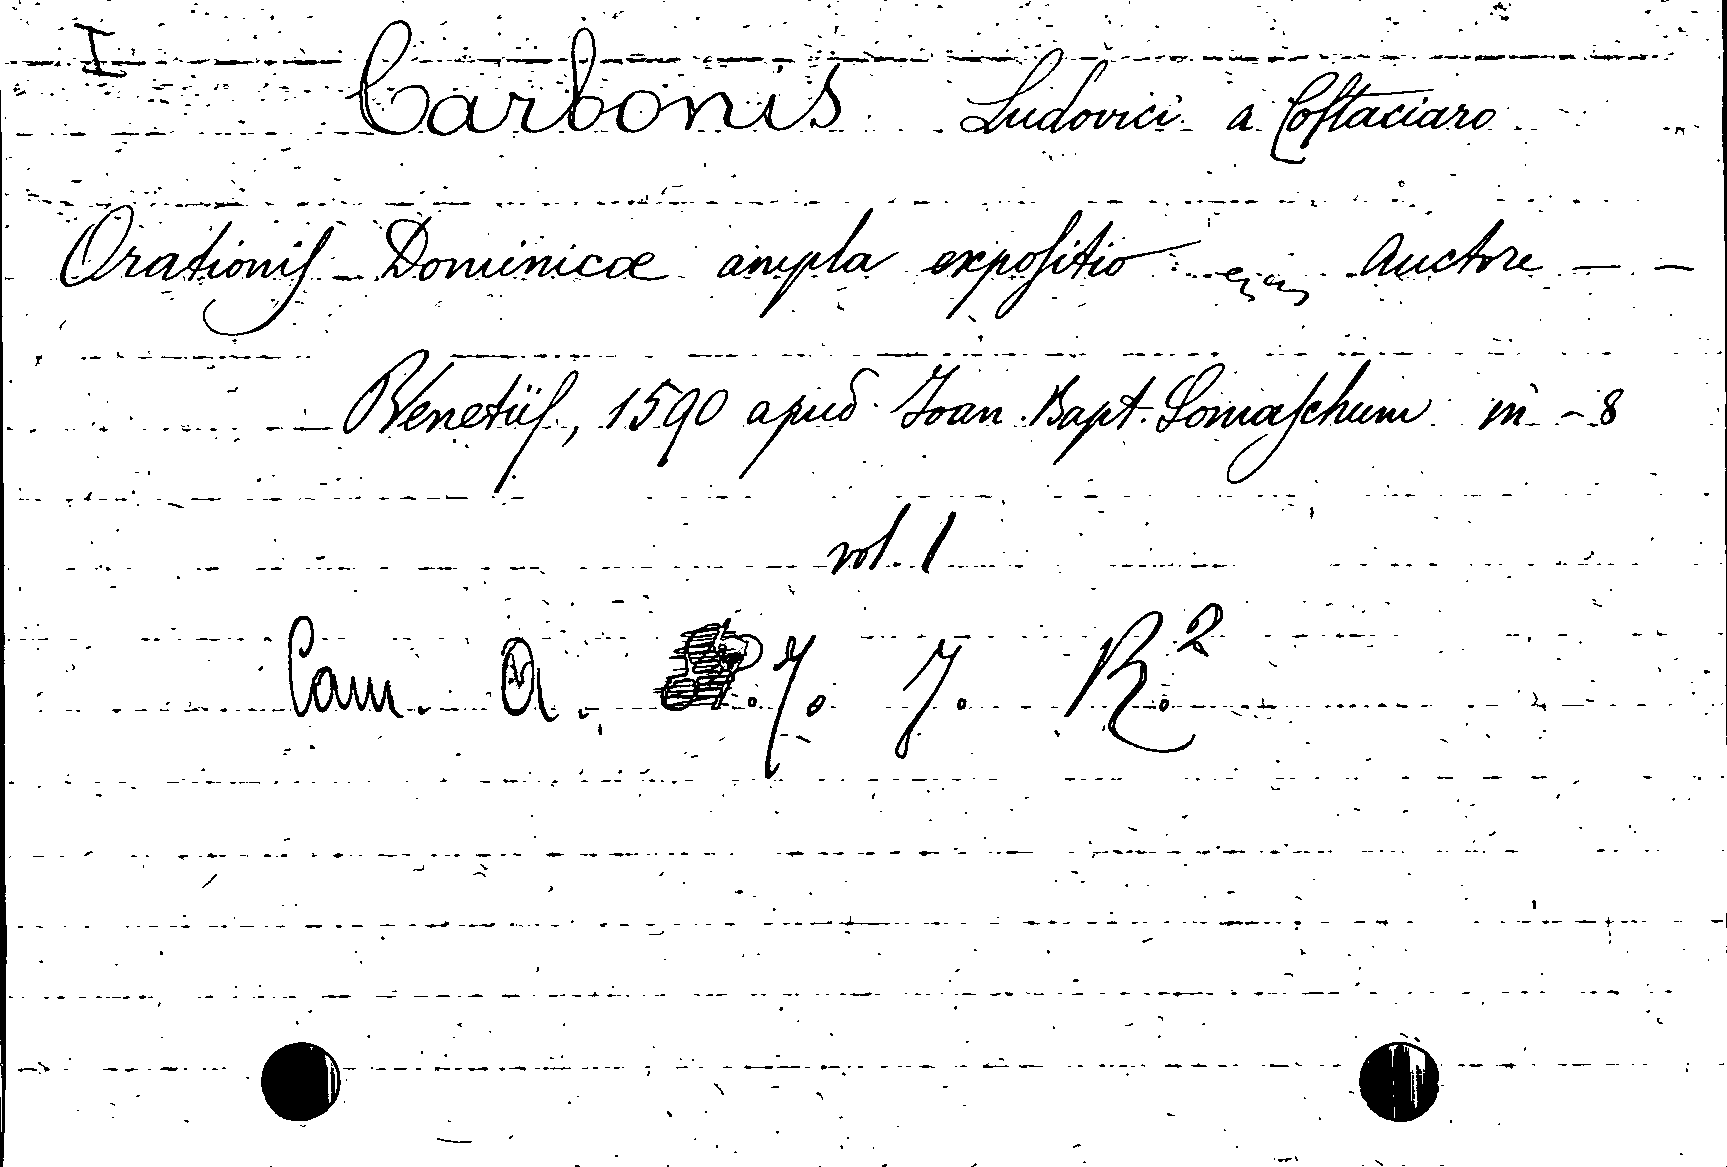 I Carbonis Ludovici a Coſtaciaro
Orationiſ Dominicæ ampla expoſitio Auctore — —
Venetiiſ, 1590 apud Joan. Bapt. Somaſchum in - 8
vol. 1
Cam. A. J. R.2